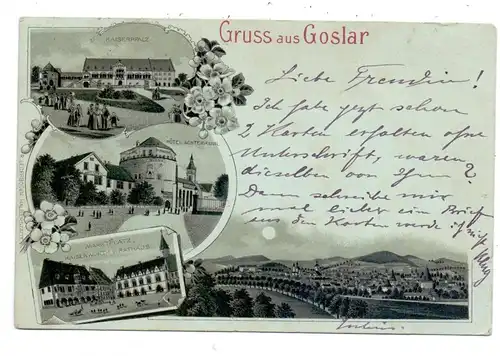 Gruss aus Goslar
KAISERHAUS
HÔTEL ACHTERMANN
MARKTPLATZ,
KAISERWORTH u. RATHAUS.
Liebe Freundin!
Ich habe jetzt schon
2 Karten erhalten ohne
Unterschrift, waren
dieselben von Ihnen?
Dann schreibe mir
mal lieber ein Brief
aus den Karten werde ich nicht
klug